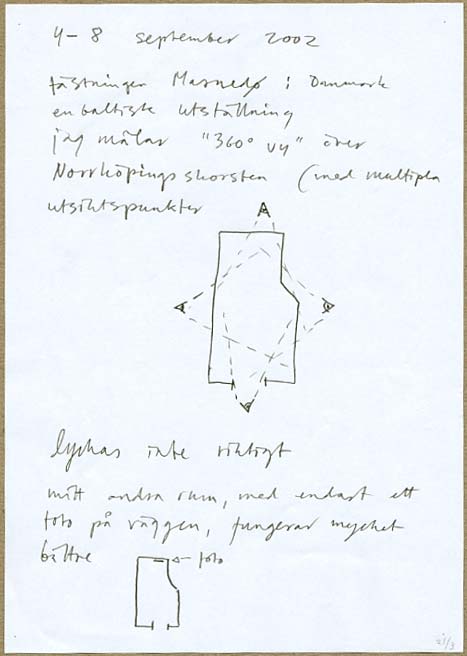 4–8 september 2002
fästningen Masnedø i Danmark
en baltiste utställning
jag målar "360° vy" över
Norrköpings skorsten (med multipla
utsiktspunkter
lyckas inte riktigt
mitt andra rum, med endast ett
foto på väggen, fungerar mycket
bättre
foto